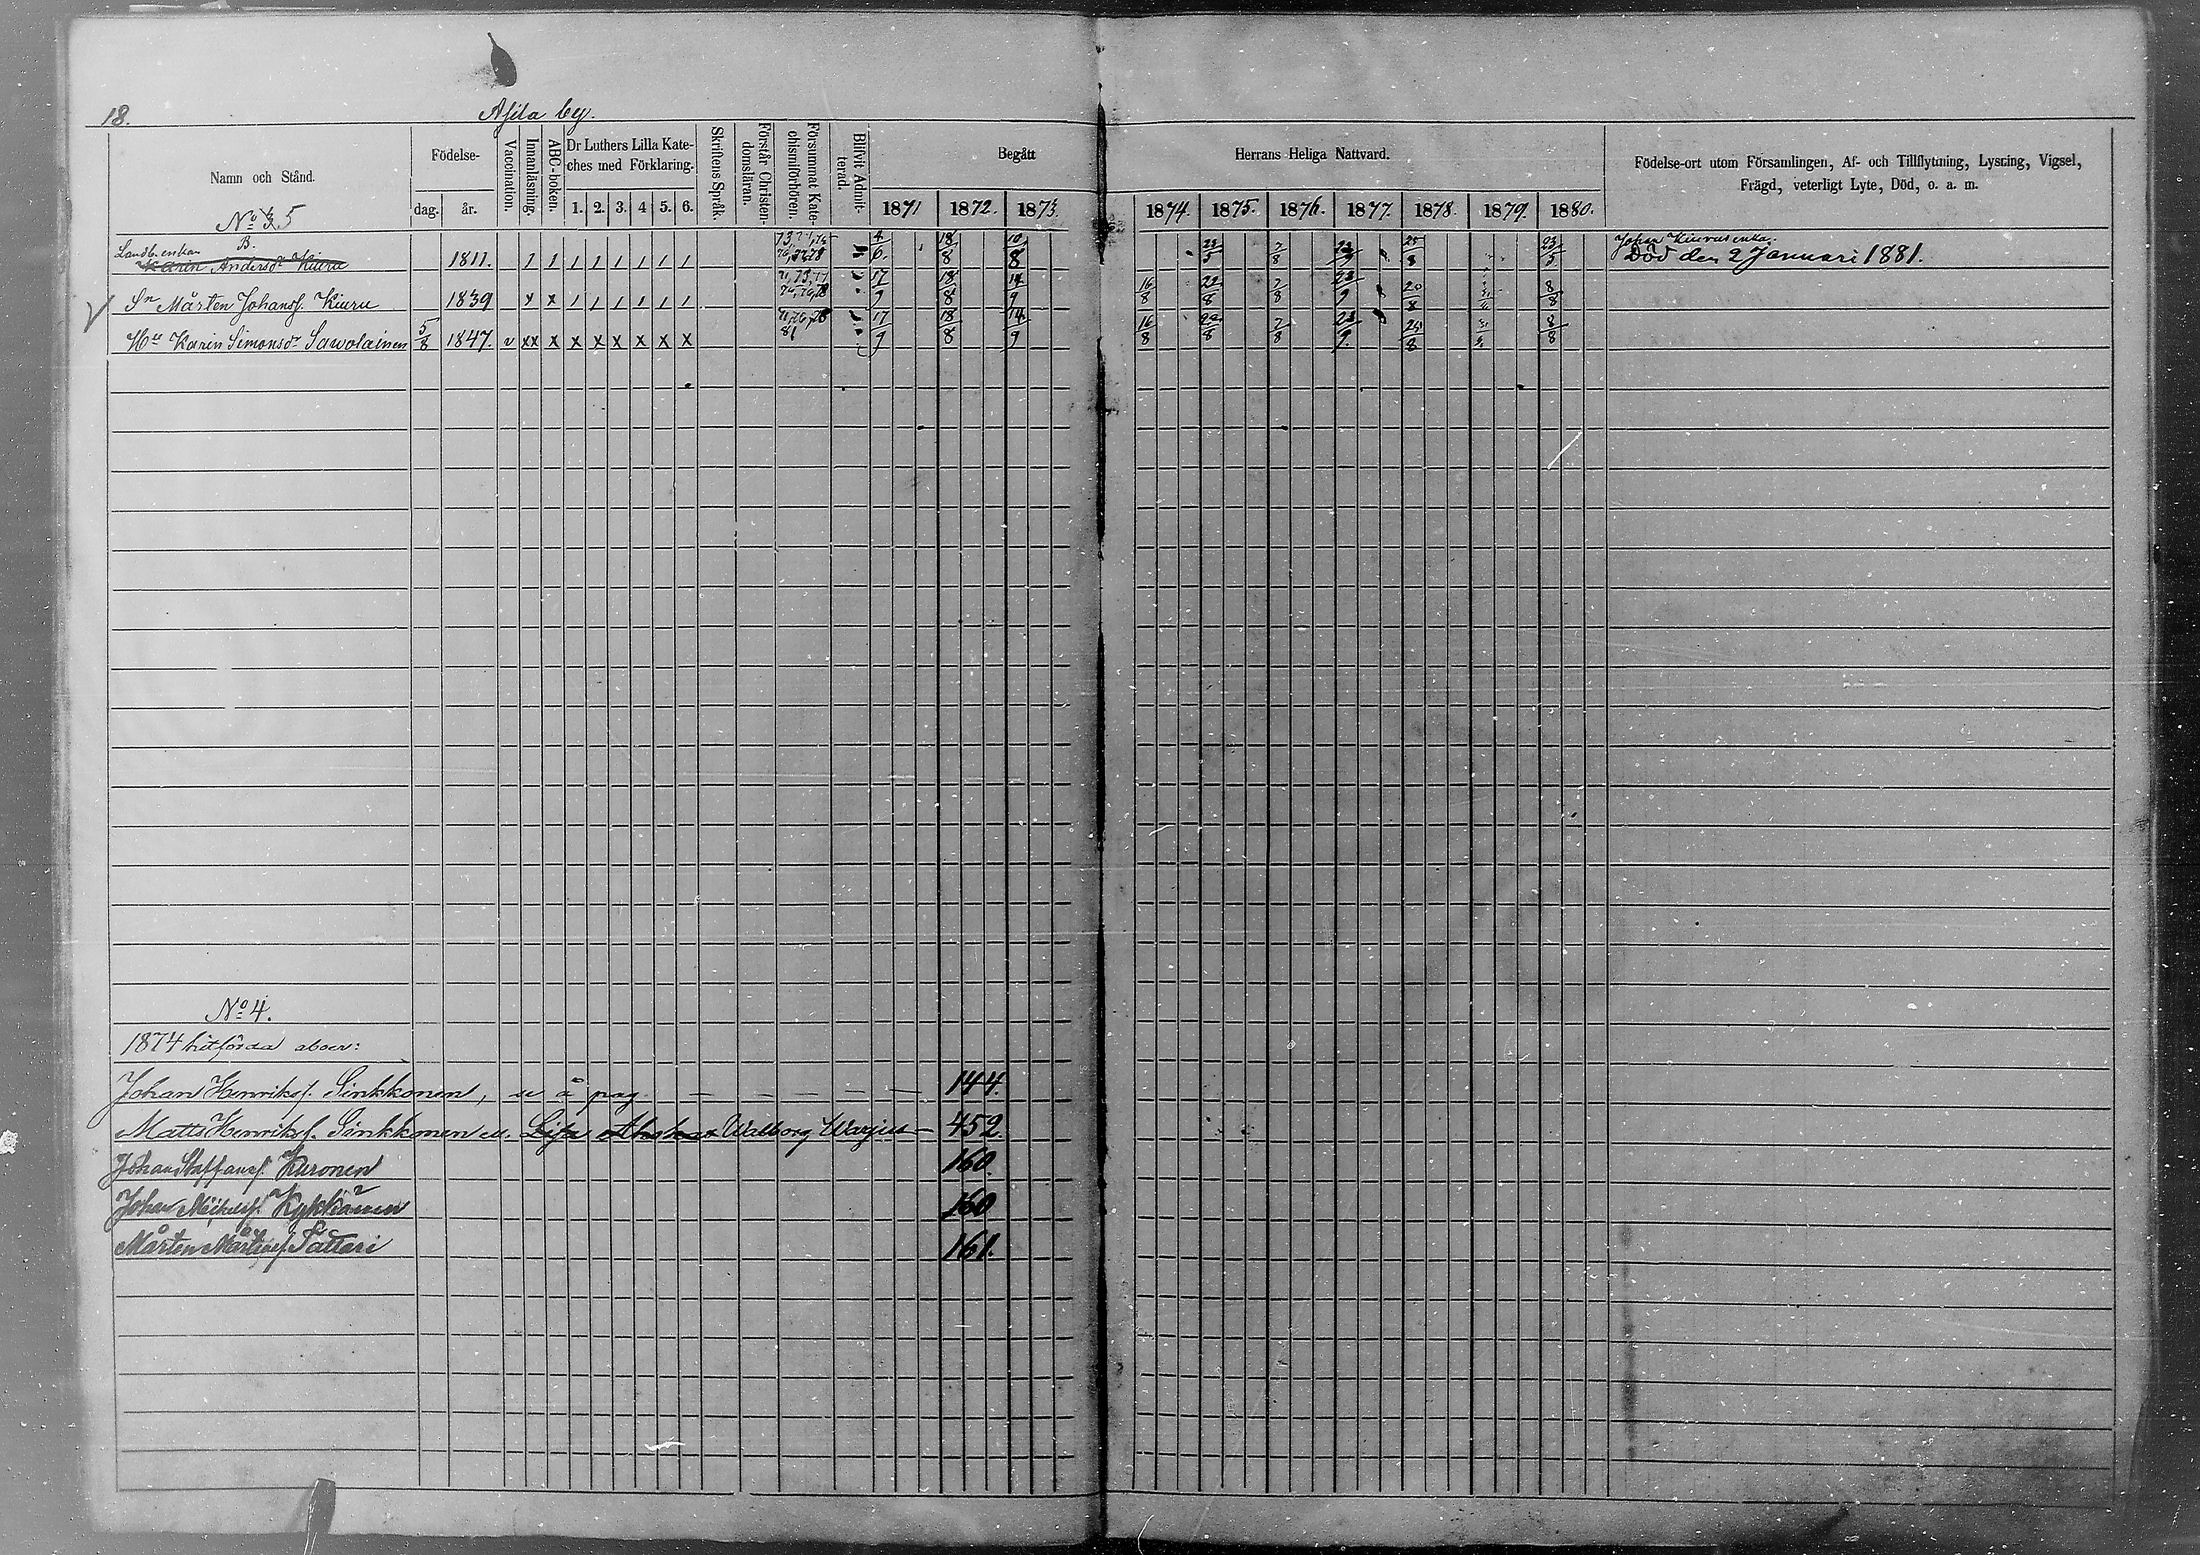 18.
Asila by.
Namn och Stånd.
Födelse-
dag.
år.
Vaccination.
Innanläsning.
ABC-boken.
Dr Luthers Lilla Kate-
ches med Förklaring.
1. 2. 3. 4 5. 6.
Skriftens Språk.
Förstår Christen-
domsläran.
Försummat Kate-
chismiförhören.
Blifvit Admit-
terad.
Begått
Herrans Heliga Nattvard.
1871 1872. 1873. 1874. 1875. 1876. 1877. 1878. 1879. 1880.
Födelse-ort utom Församlingen, Af- och Tillflyttning, Lysning, Vigsel,
Frägd, veterligt Lyte, Död, o. a. m.
No 5
B.
Landb. enkan
Karin Andersdr Kiuru 1811. 1 1 1 1 1 1 1 1 4/6 18/8 10/8 23/5 7/8 25/8 23/5
Johan Kiurus enka.
Död den 2 Januari 1881.
Sn Mårten Johanss. Kiuru 1839 x x 1 1 1 1 1 1 17/9 18/8 14/9 16/8 22/8 7/8 23/9 8/8
Hu Karin Simonsdr Sawolainen 5/8 1847. v xx x x x x x x x 81 17/9 18/8 14/9 16/8 22/8 7/8 23/9 25/8 8/8
No 4.
1874 hitförda aboer:
Johan Henrikss. Sinkkonen, se å pag. — — — — — 144.
Matts Henrikss. Sinkkonen Walborg — 452.
Johan Staffanss. Kuronen 160.
Johan Kykkänen 160
Mårten Mårtenss Pättäri 161.